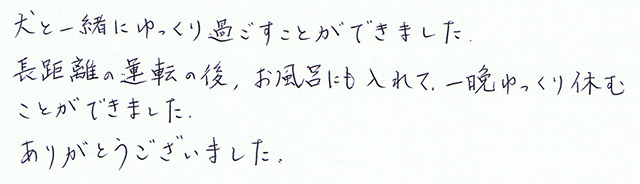 犬と一緒にゆっくり過ごすことができました.
長距離の運転の後, お風呂にも入れて. 一晩ゆっくり休む
ことができました.
ありがとうございました.